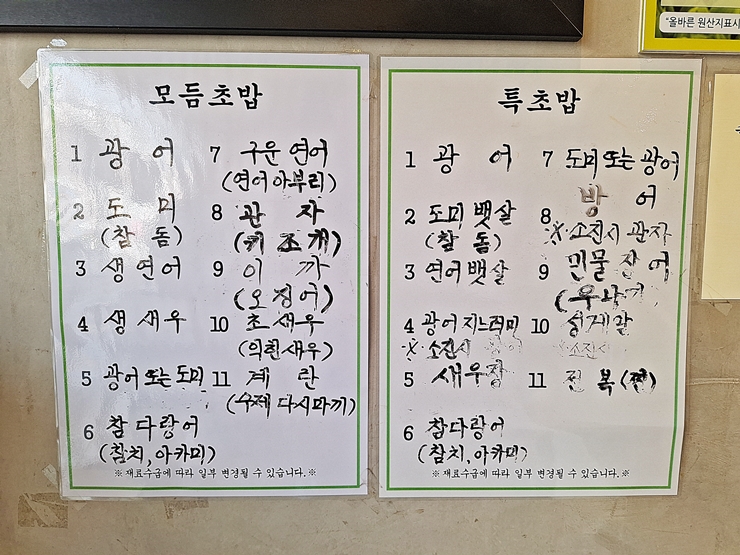 "올바른 원산지표시
모듬초밥
1 광어
2 도미
(참돔)
3 생연어
4 생새우
5 광어 또는 도미
6 참다랑어
(참치, 아카미)
7 구운 연어
(연어아부리)
8 관자
(키조개)
9 이까
(오징어)
10 초새우
(익힌새우)
11 계란
(수제 다시마끼)
※재료수급에 따라 일부 변경될 수 있습니다.※
특초밥
1 광어
2 도미 뱃살
(참돔)
3 연어 뱃살
4 광어 지느러미
※ 소진시
5 새우장
6 참다랑어
(참치, 아카미)
7 도미 또는 광어
8 방어
※ 소진시 관자
9 민물장어
(우나기)
10 성게알
※소진시
11 전복(찐)
※재료수급에 따라 일부 변경될 수 있습니다.※